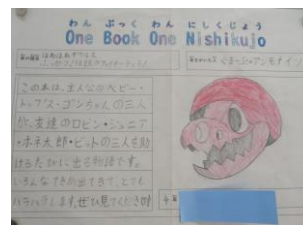 わん ぶっく わん にしくじょう
One Book One Nishikujo
この本は、主人公のベビー・
トップス・ゴンちゃんの三人
が、友達のロビン・ジュニア
・ホネ太郎・ビットの三人を助
けるたびに、出る物語です。
いろんなてきが出てきて、とても
ハラハラします。ぜひ見てくださいね